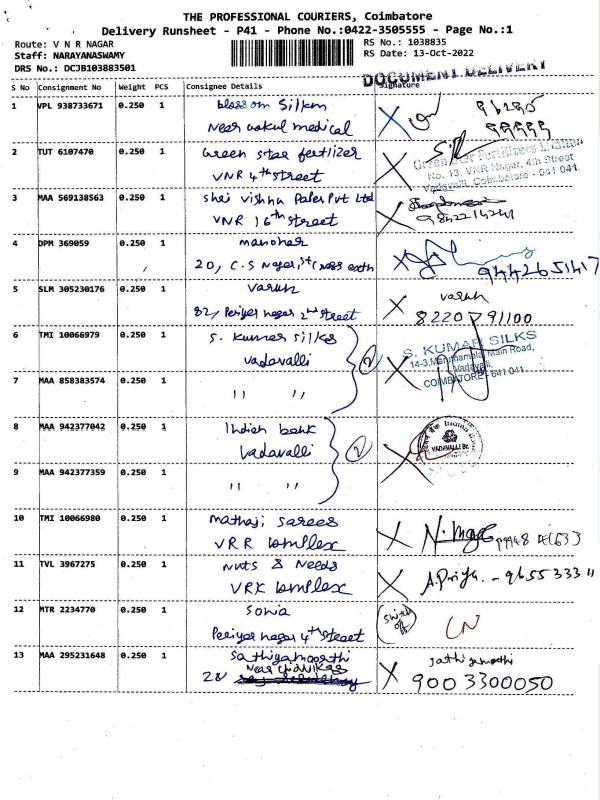 THE PROFESSIONAL COURIERS, Coimbatore
Delivery Runsheet - P41 - Phone No.:0422-3505555 - Page No.:1
Route: V N R NAGAR
Staff: NARAYANASWAMY
DRS No.: DCJB103883501
RS No.: 1038835
RS Date: 13-Oct-2022
DOCUMENT DELIVERY
S No Consignment No Weight PCS Consignee Details Signature
1 VPL 938733671 0.250 1 blossom Silkm
Near vakul medical
2 TUT 6107470 0.250 1 Green star fertilizer
VNR 4th street
Green Star Fertilizers Limited
No. 13, VNR Nagar, 4th Street
Vadavalli, Coimbatore - 641 041.
3 MAA 569138563 0.250 1 shri vishnu Paper Pvt Ltd
VNR 16th street
4 DPM 369059 0.250 1 manohar
20, C.S Nagar,
9442651417
5 SLM 305230176 0.250 1 varun
82, Periyar nagar 2nd street
varun
8220791100
6 TMI 10066979 0.250 1 S. kumar silks
Vadavalli
S. KUMAR SILKS
14-3, Maruthamalai Main Road,
Vadavalli,
COIMBATORE - 641 041.
7 MAA 858383574 0.250 1 " "
2
8 MAA 942377042 0.250 1 Indian bank
Vadavalli
VADAVALLI Br.
9 MAA 942377359 0.250 1 " "
2
10 TMI 10066980 0.250 1 mathaji sarees
VRR complex
11 TVL 3967275 0.250 1 Nuts & Needs
VRR complex
A.Priya. - 9655333
12 MTR 2234770 0.250 1 sonia
Periyar nagar 4th street
switch off
CN
13 MAA 295231648 0.250 1 sathiyamoorthi
28
sathiyamoorthi
9003300050